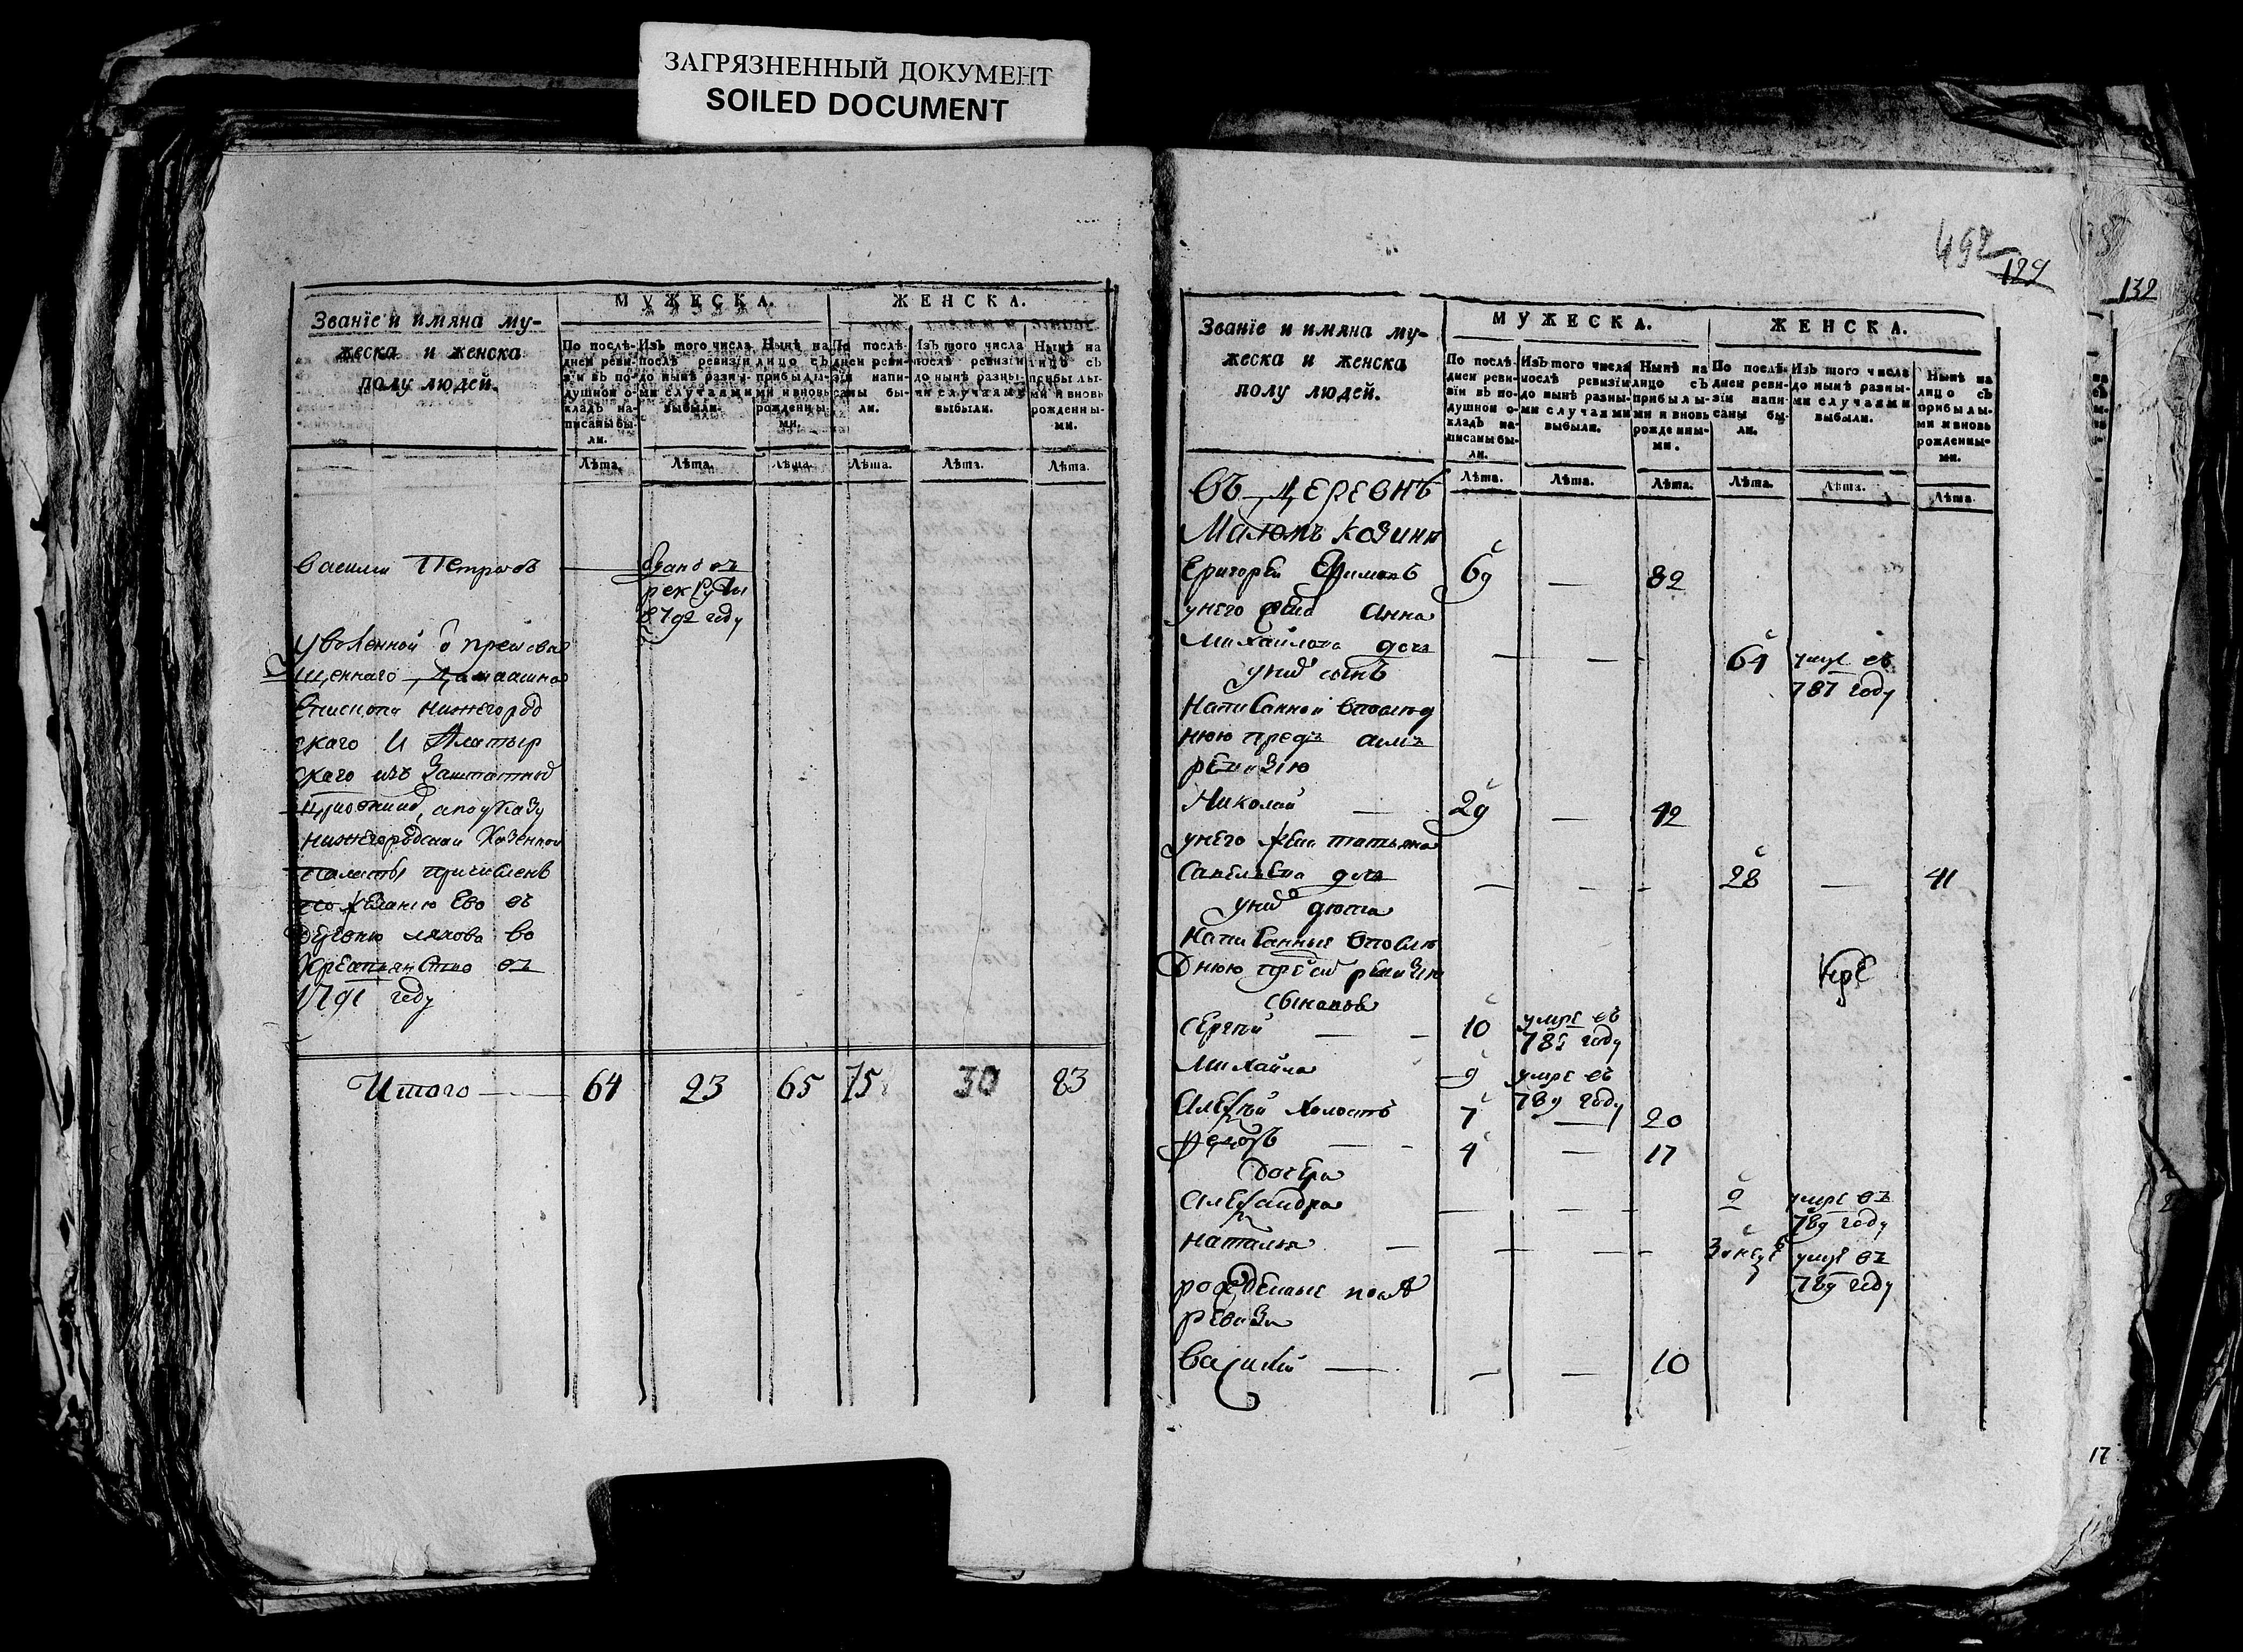 ЗАГРЯЗНЕННЫЙ ДОКУМЕНТ
SOILED DOCUMENT
Званїе и имяна му-
жеска и женска
полу людей.
МУЖЕСКА.
ЖЕНСКА.
По послѣ-
дней реви-
зїи въ по-
душной о-
кладъ на-
писаны бы-
ли.
Изъ того числа
послѣ ревизїи
до нынѣ разны-
ми случаями
выбыли.
Нынѣ на
лицо съ
прибылы-
ми и вновь
рожденны-
ми.
По послѣ-
дней реви-
зїи напи-
саны бы-
ли.
Изъ того числа
послѣ ревизїи
до нынѣ разны-
ми случаями
выбыли.
Нынѣ на
лицо съ
прибылы-
ми и вновь
рожденны-
ми.
Лѣта. Лѣта. Лѣта. Лѣта. Лѣта. Лѣта.
Василеи Петровъ
рекруты
в 792 году
Уволенной
щеннаго
Епископа Нижегород
скаго и Алатыр
скаго изъ Заштатныхъ
апоуказу
Нижегородскаи Казенной
Палаты причисленъ
пожеланию Ево въ
деревню ляхово во
Крестьянство въ
году
Итого 64 23 65 75 30 83
492
129
132
Званїе и имяна му-
жеска и женска
полу людей.
МУЖЕСКА.
ЖЕНСКА.
По послѣ-
дней реви-
зїи въ по-
душной о-
кладъ на-
писаны бы-
ли.
Изъ того числа
послѣ ревизїи
до нынѣ разны-
ми случаями
выбыли.
Нынѣ на
лицо съ
прибылы-
ми и вновь
рожденны-
ми.
По послѣ-
дней реви-
зїи напи-
саны бы-
ли.
Изъ того числа
до нынѣ разны-
ми случаями
выбыли.
Нынѣ на
лицо съ
прибылы-
ми и вновь
рожденны-
ми.
Лѣта. Лѣта. Лѣта. Лѣта. Лѣта. Лѣта.
Въ деревнѣ
Маломъ козинѣ
Григореи Ефимовъ 69 — 82
унего жена Анна
Михайлова дочь — — 64 умре въ
787 году
унихъ сынъ
Написанной впослѣд
нюю предъ симъ
ревизию
Николай — 29 — 42
унего жена татьяна
Савельева дочь — — — 28 — 41
унихъ дѣти
Написанные впослѣ
днюю ревизию
сыновья
Сергѣй — — 10 умре въ
785 году
Михайла — 9 умре въ
789 году
Алексѣй холостъ 7 — 20
Федоръ — — 4 — 17
Дочери
Александра — — — 2 умре въ
789 году
Наталья — — — — умре въ
789 году
рожденные послѣ
ревизи
Василий — — — 10
17